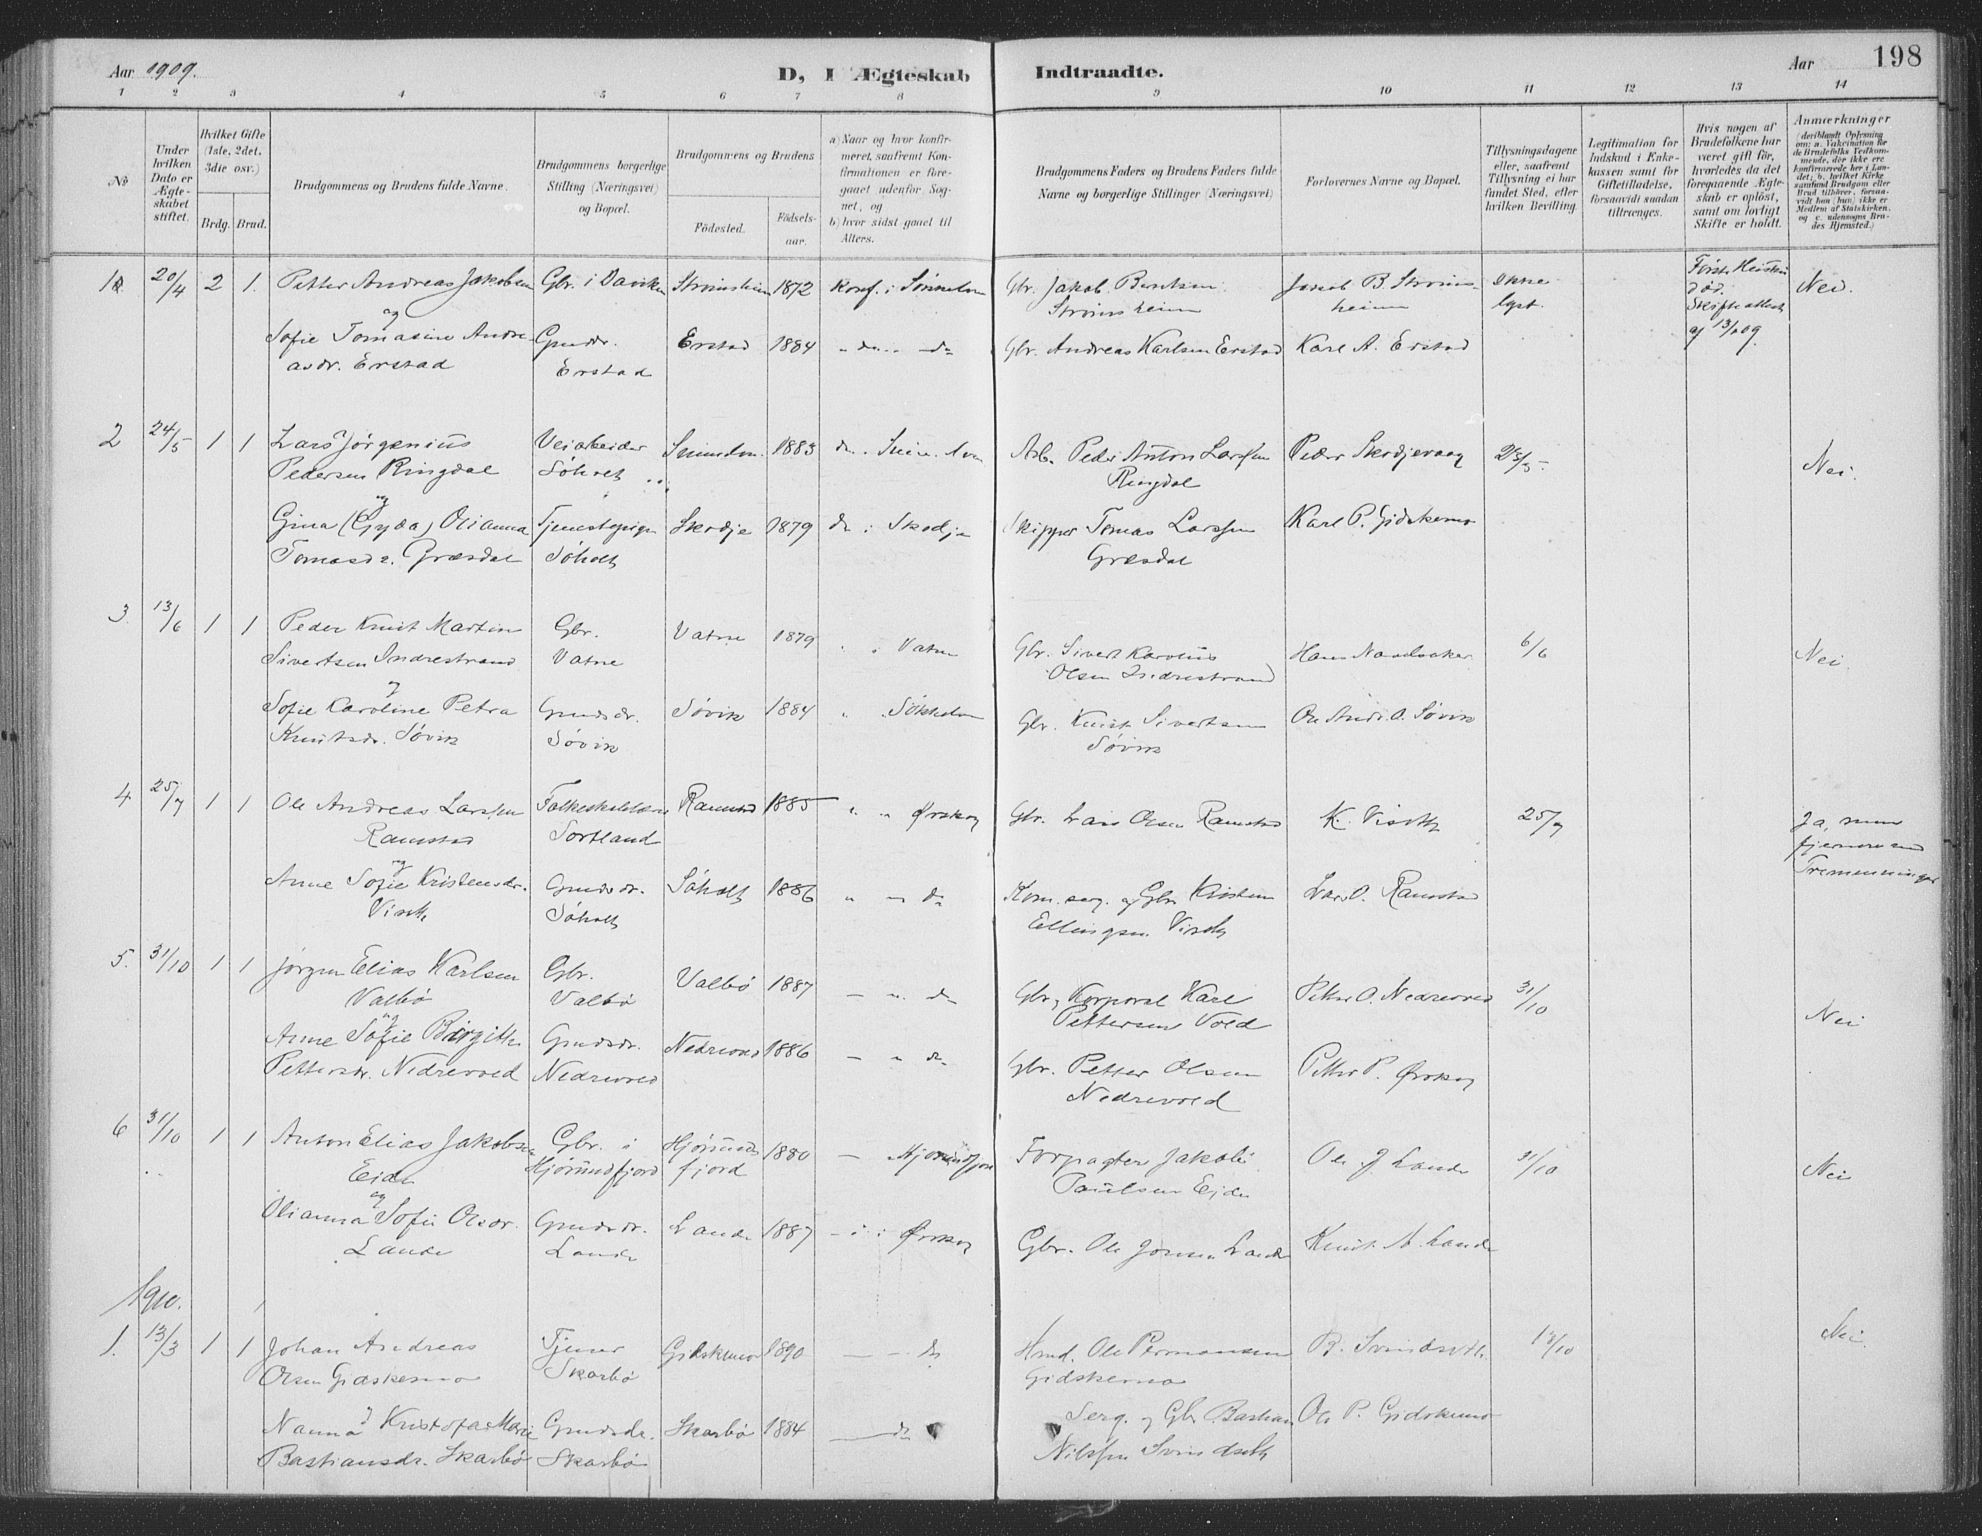 Aar 1909.
D, I Ægteskab Indtraadte.
Aar 198
1 2 3 4 5 6 7 8 9 10 11 12 13 14
No
Under hvilken Dato er Ægteskabet stiftet.
Hvilket Gifte (1ste, 2det, 3die osv.)
Brdg. Brud.
Brudgommens og Brudens fulde Navne.
Brudgommens borgerlige Stilling (Næringsvei) og Bopæl.
Brudgommens og Brudens
Födested.
Födselsaar.
a) Naar og hvor konfirmeret, saafremt Konfirmationen er foregaaet udenfor Sognet, og
b) hvor sidst gaaet til Alters.
Brudgommens Faders og Brudens Faders fulde Navne og borgerlige Stillinger (Næringsvei)
Forlovernes Navne og Bopæl.
Tillysningsdagene eller, saafremt Tillysning ei har fundet Sted, efter hvilken Bevilling.
Legitimation for Indskud i Enkekassen samt for Giftetilladelse, forsaavidt saadan tiltrænges.
Hvis nogen af Brudefolkene har været gift för, hvorledes da det foregaaende Ægteskab er oplöst, samt om lovligt Skifte er holdt.
Anmærkninger
(deriblandt Oplysning om: a. Vakcination for de Brudefolks Vedkommende, der ikke ere konfirmerede her i Landet; b. hvilket Kirkesamfund Brudgom eller Brud tilhörer, forsaavidt han (hun) ikke er Medlem af Statskirken, og c. udensogns Brudes Hjemsted.)
1 20/4 2 1. Petter Andreas Jakobsen Gbr. i Daviken Strømsheim 1872 Konf. i Gbr. Jakob Bentsen Jacob B. Strømsheim lyst. Nei.
og Strømsheim
død.
Skifteattest
af
Sofie Tomasine Andreasdr. Erstad Gmdr. Erstad Erstad 1884 " do " do Gbr. Andreas Karlsen Erstad Karl A. Erstad
2 24/5 1 1 Lars Jørgenius Pedersen Ringdal Veiarbeider Søholt 1883 do Arb. Peder Anton Larssen Ringdal Peder Skodjevaag Nei.
og
Gina (Gyda) Olianna Tomasdr. Græsdal Tjenestepige Søholt Skodje 1879 do i Skodje Skipper Tomas Larssen Græsdal Karl P. Gidskemo
3. 13/6 1 1 Peder Knut Martin Sivertsen Indrestrand Gbr. Vatne Vatne 1879 " i Vatne Gbr. Sivert Karolus Olsen Indrestrand Hans 6/6 Nei.
og
Sofie Karoline Petra Knutsdr. Søvik Gmdsdr. Søvik Søvik 1884 " Gbr. Knut Sivertsen Søvik Ole Andr. O. Søvik
4 25/7 1 1 Ole Andreas Larssen Ramstad Folkeskolelærer Sortland Ramstad 1885 " " Ørskog Gbr. Lars Olsen Ramstad K. Viset 25/7 Ja, men fjernere end Tremenninger
og
Anne Sofie Kristensdr. Gmdsdr. Søholt Søholt 1886 " " do Korn. serg. og Gbr. Kristen Ellingsen Lars O. Ramstad
5. 31/10 1 1 Jørgen Elias Karlsen Valbø Gbr. Valbø Valbø 1887 – " do Gbr., Korporal Karl Pettersen Vold Petter O. Nedrevold 31/10 Nei
og
Anne Sofie Birgitte Pettersdr. Nedrevold Gmdsdr. Nedrevold Nedrevold 1886 – " do Gbr. Petter Olsen Nedrevold Petter P. Ørskog
6 31/10 1 1 Anton Elias Jakobsen Eide Gbr. i Hjørundfjord Hjørundfjord 1880 – Hjørundfjord Forpagter Jakob Paulsen Eide Ole J. Lande 31/10 Nei
og
Olianna Sofie Olsdr. Lande Gmdsdr. Lande Lande 1887 – i Ørskog Gbr. Ole Jonsen Lande Knut A. Lande
1910.
1. 13/3 1 1 Johan Andreas Olsen Gidskemo Tjener Skarbø Gidskemo 1890 – – do Hmd. Ole Permansen Gidskemo 13/10 Nei
og
Nanna Kristofa Marie Bastiansdr. Skarbø Gmdsdr. Skarbø Skarbø 1884 – do Serg. og Gbr. Bastian Nilssen Svindseth Ole P. Gidskemo